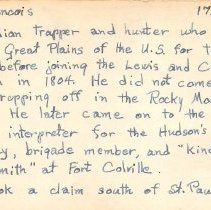 ncois 17
dian trapper and hunter who
Great Plains of the U.S. for t
before joining the Lewis and C
in 1804. He did not come
ropping off in the Rocky Mo
He later came on to the
interpreter for the Hudson's
y, brigade member, and "Kine
mith" at Fort Colville.
ok a claim south of St. Pau